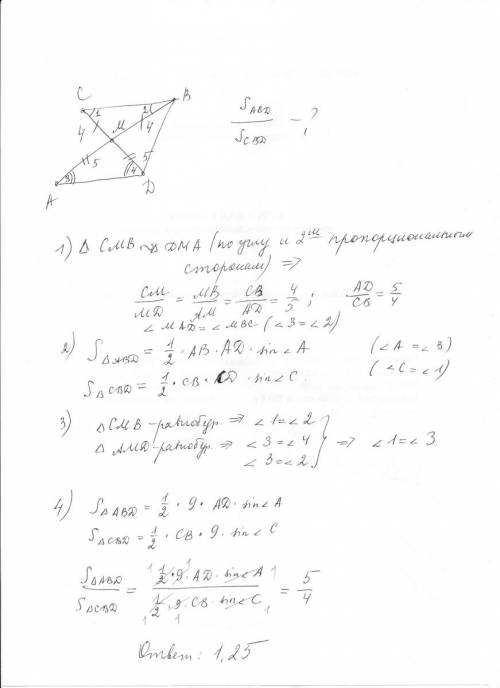 C 1 2 B
4 M 4
5 5
A 3 4 D
S_ABD / S_CBD - ?
1) Δ CMB ∾ Δ DMA (по углу и 2ум пропорциональным
сторонам) ⇒
CM/MD = MB/AM = CB/AD = 4/5 ; AD/CB = 5/4
∠ MAD = ∠ MBC (∠3 = ∠2)
2) S_ΔABD = 1/2 · AB · AD · sin∠A (∠A = ∠3)
S_ΔCBD = 1/2 · CB · CD · sin∠C. (∠C = ∠1)
3) Δ CMB - равнобур. ⇒ ∠1 = ∠2
Δ AMD - равнобур. ⇒ ∠3 = ∠4 } ⇒ ∠1 = ∠3.
∠3 = ∠2
4) S_ΔABD = 1/2 · 9 · AD · sin∠A
S_ΔCBD = 1/2 · CB · 9 · sin∠C
S_ΔABD / S_ΔCBD = 1/2 · 9 · AD · sin∠A / 1/2 · 9 · CB · sin∠C = 5/4
Ответ: 1,25